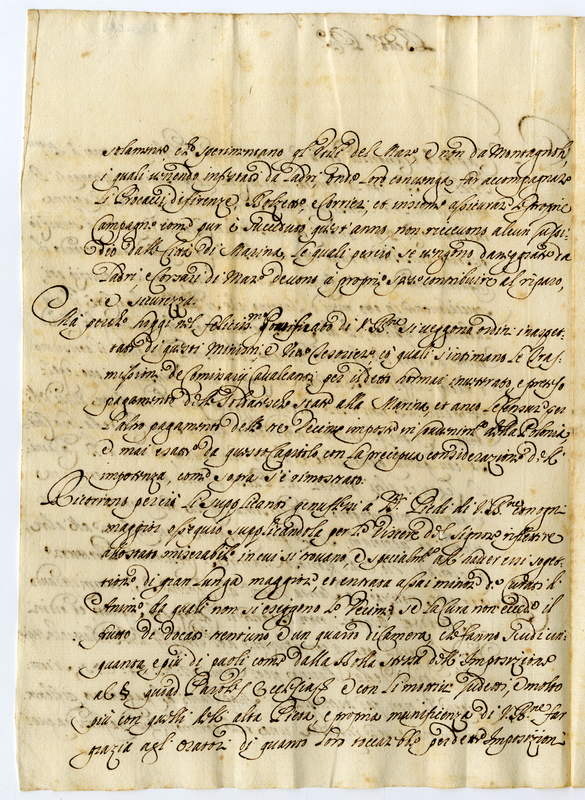 solamente che sperimentano gl'Utili del Mare, e non da Montagnoli,
i quali venendo infestati da Ladri, onde loro convenga far accompagnare
li Procacci di Firenze, Bolzette, e Corrieri, et insieme assicurar le proprie
Campagne come pur è succeduto quest'anno, non ricevono alcun sussi-
dio dalle Città di Marina, le quali perciò se vengono danneggiate da
Ladri, e Corsari di Mare devono a proprie spese contribuire al riparo,
e sicurezza.
Ma perche hoggi nel feliciss.mo Pontificato di V. B.ne si veggono ordini inaspet-
tati di questi Ministri e Tesorieri co' quali s'intimano le Tras-
missioni de Comissarij Cavalcanti per il detto hormai frustrato, e perso
pagamento delle Soldatesche state alla Marina, et anco le censure per
l'altro pagamento delle tre Decime imposte in sovvenim.to della Polonia
e mai esatte da questo Capitolo con la precipua considerazione dell'
impotenza, come sopra s'è dimostrato.
Ricorrono perciò li Supplicanti genuflessi a' SS.mi Piedi di V. B.ne con ogni
maggior ossequio supplicandola per le Viscere del Signore riflettere
allo stato miserabile in cui si trovano, e specialm.te al non ader essi sogget-
tione di gran lunga maggiore, et entrata assai minore de Curati d'
Anime, da quali non si esiggono le Decime se la Cura non eccede il
frutto de Docati trentuno e un quarto di Camera, che fanno scudi cin-
quanta, e più di paoli, come dalla Bolla stessa delle Imposizione
al § quoad Parochiales Ecclesias e con li motivi sudetti, e molto
più con quelli della alta Pietà, e propria munificenza di V. B.ne far
grazia agl'Oratori di quanto loro toccarebbe per dette Imposizioni